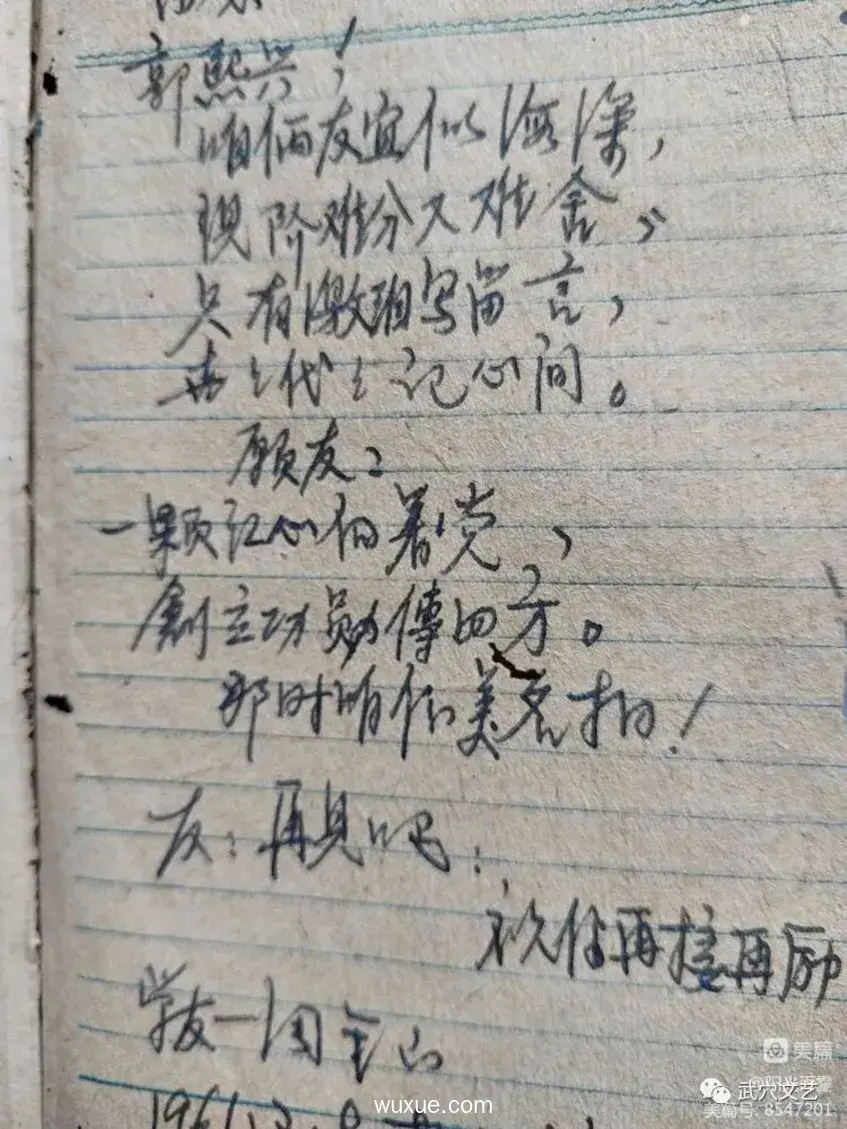 郭熙兴!
咱俩友宜似海深,
现阶难分又难舍,
只有激动写留言,
世々代々记心间。
願友:
一颗红心向着党,
創立功勋傳四方。
那时咱俩美名扬!
友:再見吧:
祝你再接再励
学友—周
1961.
美篇
@阳光
武穴文艺
美篇号: 8547201
wuxue.com